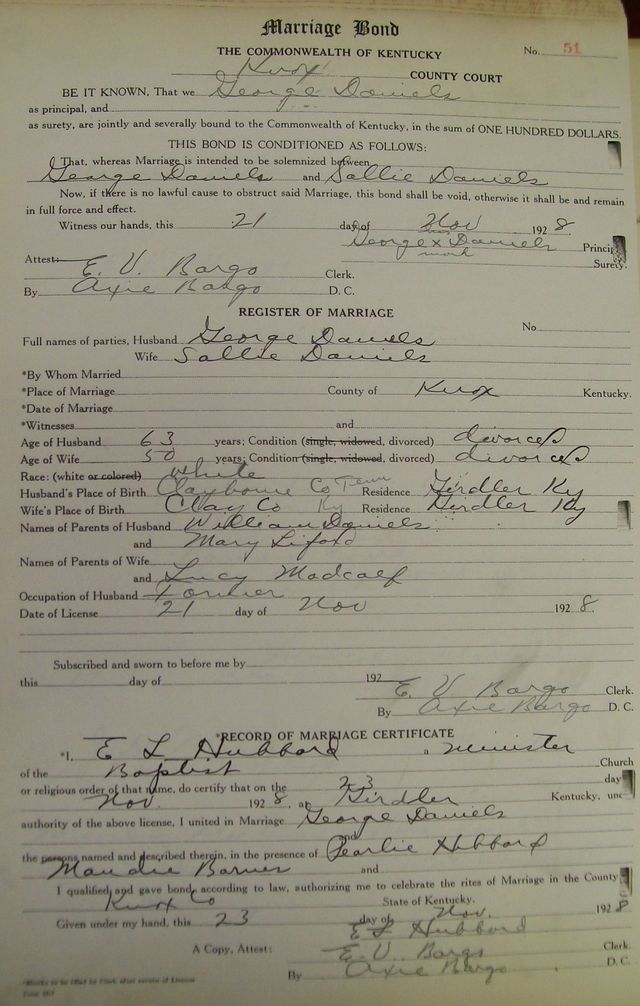 Marriage Bond
THE COMMONWEALTH OF KENTUCKY No. 51
Knox COUNTY COURT
BE IT KNOWN, That we George Daniels
as principal, and
as surety, are jointly and severally bound to the Commonwealth of Kentucky, in the sum of ONE HUNDRED DOLLARS.
THIS BOND IS CONDITIONED AS FOLLOWS:
That, whereas Marriage is intended to be solemnized between
George Daniels and Sallie Daniels
Now, if there is no lawful cause to obstruct said Marriage, this bond shall be void, otherwise it shall be and remain
in full force and effect.
Witness our hands, this 21 day of Nov 1928.
George x Daniels Princip
mark
Surety.
Attest: E. V. Bargo Clerk.
By Axie Bargo D. C.
REGISTER OF MARRIAGE
No
Full names of parties, Husband George Daniels
Wife Sallie Daniels
*By Whom Married
*Place of Marriage County of Knox Kentucky.
*Date of Marriage
*Witnesses and
Age of Husband 63 years; Condition (single, widowed, divorced) divorced
Age of Wife 50 years; Condition (single, widowed, divorced) divorced
Race: (white or colored) White
Husband's Place of Birth Clayborne Co Tenn Residence Girdler Ky
Wife's Place of Birth Clay Co Ky Residence Girdler Ky
Names of Parents of Husband William Daniels
and Mary Liford
Names of Parents of Wife
and Lucy Madcalf
Occupation of Husband Farmer
Date of License 21 day of Nov 1928.
Subscribed and sworn to before me by
this day of 192
E. V. Bargo Clerk.
By Axie Bargo D. C.
*RECORD OF MARRIAGE CERTIFICATE
*I, E L Hubbard a minister
of the Baptist Church
or religious order of that name, do certify that on the 23 day
Nov. 1928, at Girdler Kentucky, unde
authority of the above license, I united in Marriage George Daniels
and
the persons named and described therein, in the presence of Pearlie Hubbard
Maudie Barnes and
I qualified and gave bond, according to law, authorizing me to celebrate the rites of Marriage in the County
Knox Co State of Kentucky.
Given under my hand, this 23 day of Nov. 1928
E L Hubbard
A Copy, Attest: E. V. Bargo Clerk.
By Axie Bargo D. C.